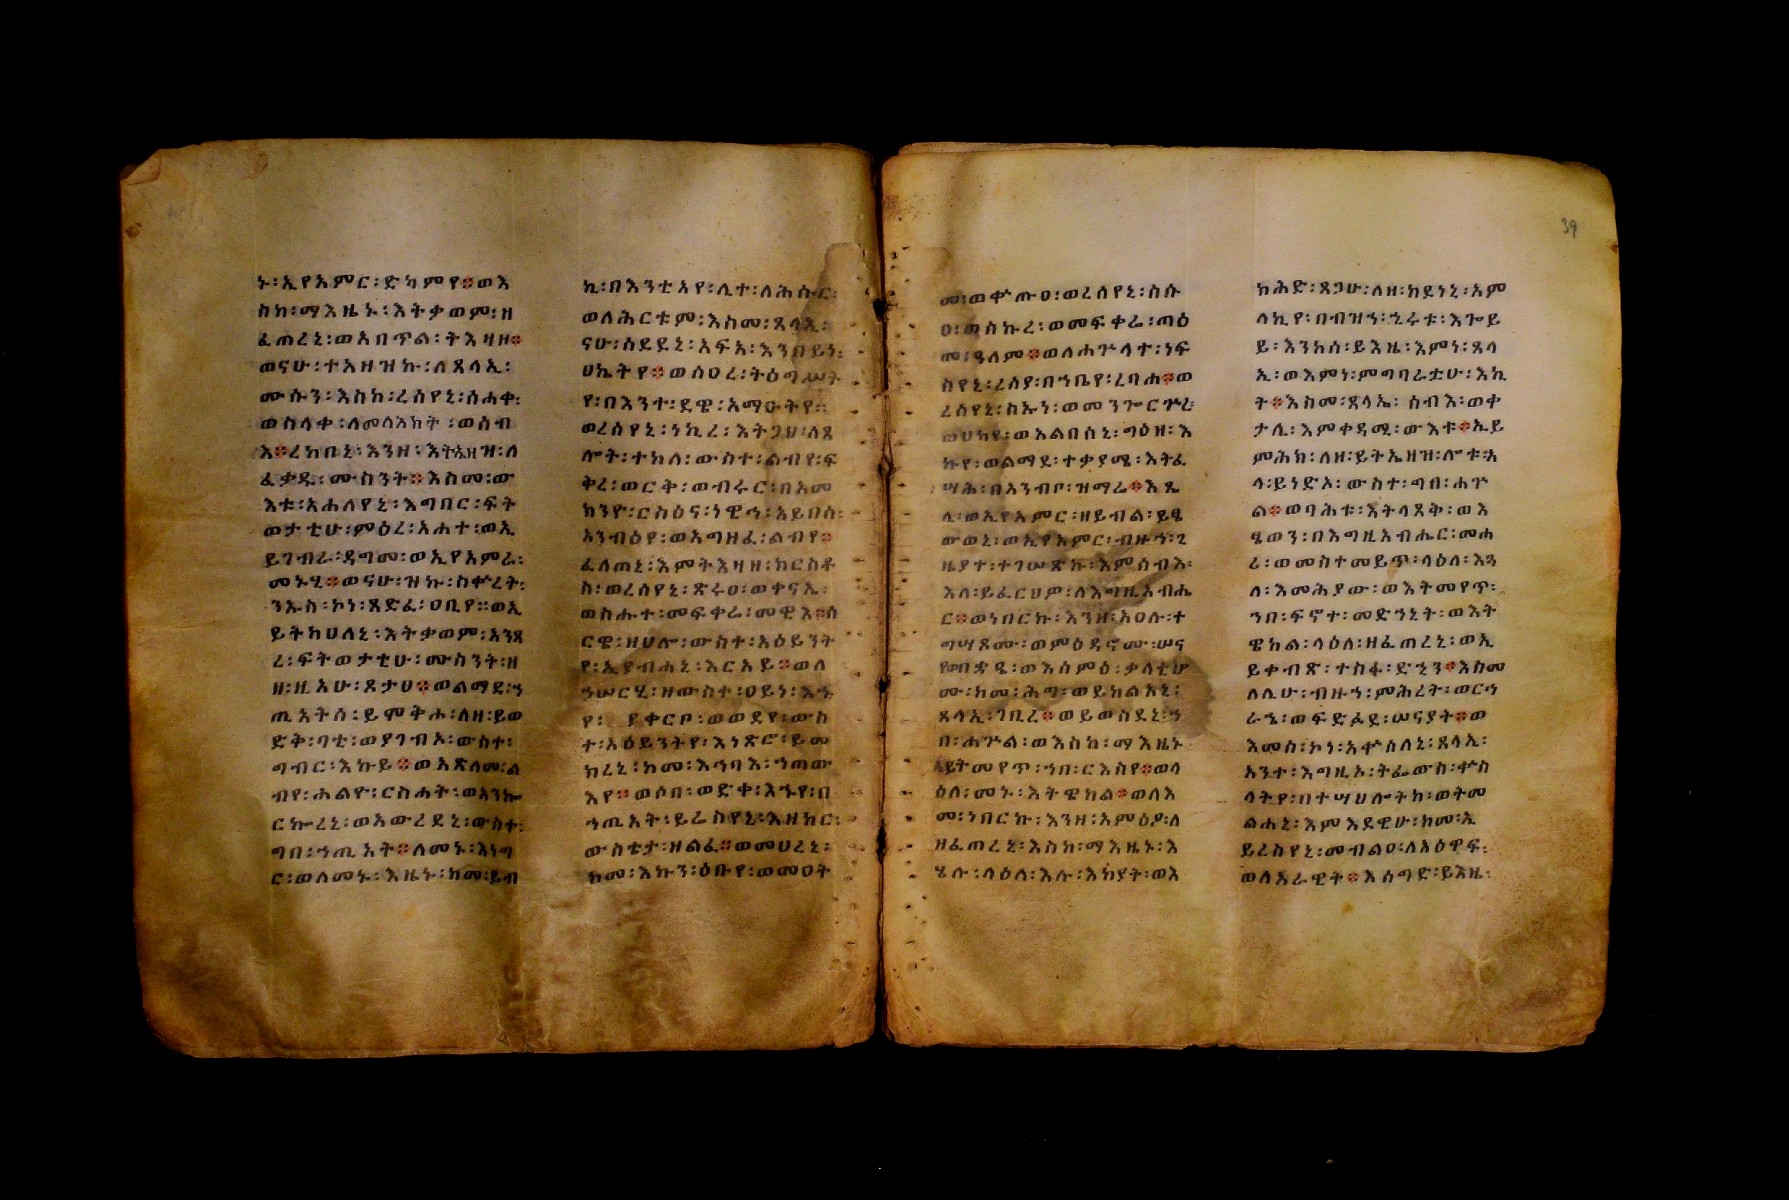 ኑ፡ኢየአምር፡ድካምየ፨ወእ
ስከ፡ማእዜኑ፡እትቃወም፡ዘ
ፈጠረኒ፡ወአበጥል፡ትእዛዘ፨
ወናሁ፡ተአዘዝኩ፡ለጸላኢ፡
ሙስን፡እስከ፡ረሰየኒ፡ሰሐቀ፡
ወስላቀ፡ለመላእክት፡ወሰብ
እ፨ረከበኒ፡እንዘ፡እትኤዘዝ፡ለ
ፈቃዱ፡ሙስንት፨እስመ፡ው
እቱ፡አሐለየኒ፡እግበር፡ፍት
ወታቲሁ፡ምዕረ፡አሐተ፡ወኢ
ይገብራ፡ዳግመ፡ወኢየአምራ፡
መኑሂ፨ወናሁ፡ዝኩ፡ስቍረት፡
ንኡስ፡ኮነ፡ጸድፈ፡ዐቢየ፡፡ወኢ
ይትከሀለኒ፡እትቃወም፡አንጻ
ረ፡ፍትወታቲሁ፡ሙስንት፡ዘ
ዘ፡ዚአሁ፡ጾታሀ፨ወልማደ፡ኀ
ጢአትሰ፡ይሞቅሖ፡ለዘ፡ይወ
ድቅ፡ባቲ፡ወያገብኦ፡ውስተ፡
ግብር፡እኩይ፨ወአጽለመ፡ል
ብየ፡ሐልዮ፡ርስሐት፡ወአንኰ
ርኰረኒ፡ወአውረደኒ፡ውስተ፡
ግበ፡ኀጢአት፨ለመኑ፡እነግ
ር፡ወለመኑ፡እዜኑ፡ከመ፡ይብ
ኪ፡በእንቲአየ፡ሊተ፡ለሕሱር፡
ወለሕርቱም፡እስመ፡ጸላኢ፡
ናሁ፡ሰደደኒ፡አፍአ፡እንበይነ፡
ሀኬትየ፨ወሰዐረ፡ትዕግሥት
የ፡በእንተ፡ደዌ፡አማዑትየ፡፡
ወረሰየኒ፡ነኪረ፡እትጋሀ፡ለጸ
ሎት፡ተከለ፡ውስተ፡ልብየ፡ፍ
ቅረ፡ወርቅ፡ወብሩር፡በአመ
ክንዮ፡ርስዕና፡ነዊኅ፡አይበሰ፡
አንብዕየ፡ወአግዘፈ፡ልብየ፨
ፈለጠኒ፡እምትእዛዘ፡ክርስቶ
ስ፡ወረሰየኒ፡ጽሩዐ፡ወቀናኤ፡
ወስሑተ፡መፍቀሬ፡መዊእ፨ሰ
ርዌ፡ዘሀሎ፡ውስተ፡አዕይንት
የ፡ኢያብሐኒ፡እርአይ፨ወለ
ኀሠርሂ፡ዘውስተ፡ዐይነ፡እኁ
የ፡ ያቀርቦ፡ወወደየ፡ውስ
ተ፡አዕይንትየ፡እነጽሮ፡ይመ
ክረኒ፡ከመ፡እኅባእ፡ኀጣው
እየ፨ወሶበ፡ወድቀ፡እኁየ፡በ
ኀጢአት፡ይሬስየኒ፡እዘከር፡
ውስቴታ፡ዘልፈ፨ወመሀረኒ፡
ከመ፡እኩን፡ዕቡየ፡ወመዐት
መ፡ወቍጡዐ፡ወረሰየኒ፡ስሱ
ዐ፡ወስኩረ፡ወመፍቀሬ፡ጣዕ
መ፡ዓለም፨ወለሐጕላተ፡ነፍ
ስየኒ፡ረሰያ፡በኀቤየ፡ረባሐ፨ወ
ረሰየኒ፡ስኡነ፡ወመንጐርጕረ፡
ወሀካየ፡ወአልበሰኒ፡ግዕዘ፡እ
ኩየ፡ወልማደ፡ተቃያሜ፡እትፈ
ሣሕ፡በአንብቦ፡ዝማሬ፨እጼ
ሊ፡ወኢየአምር፡ዘይብል፡ይፄ
ውወኒ፡ወኢየአምር፡ብዙኀ፡ጊ
ዜያተ፡ተገሠጽኩ፡እምሰብእ፡
እለ፡ይፈርህዎ፡ለእግዚአብሔ
ር፨ወነበርኩ፡እንዘ፡አዐሉ፡ተ
ግሣጾሙ፡ወምዕዳኖሙ፡ሠና
የ፡ወእሰምዕ፡ቃላቲሆ
ሙ፡ከመ፡ሕግ፡ወይክልአኒ፡
ጸላኢ፡ገቢረ፨ወይወስደኒ፡ኀ
በ፡ሐጕል፡ወእስከ፡ማእዜኑ
አይትመየጥ፡ኀበ፡ርእስየ፨ወላ
ዕለ፡መኑ፡እትዌከል፨ወለእ
መ፡ነበርኩ፡እንዘ፡አምዕዖ፡ለ
ዘፈጠረኒ፡እስከ፡ማእዜኑ፡እ
ሄሉ፡ላዕለ፡እሉ፡እከያት፡ወእ
ክሕድ፡ጸጋሁ፡ለዘ፡ከደነኒ፡አም
ላኪየ፡በብዝኀ፡ኂሩቱ፡እጐይ
ይ፡እንከሰ፡ይእዜ፡እምነ፡ጸላ
ኢ፡ወእምነ፡ምግባራቲሁ፡እኪ
ት፨እስመ፡ጸላኤ፡ሰብእ፡ወቀ
ታሊ፡እምቀዳሚ፡ውእቱ፨ኢይ
ምሕክ፡ለዘ፡ይትኤዘዝ፡ሎቱ፡አ
ላ፡ይነድኦ፡ውስተ፡ግበ፡ሐጕ
ል፨ወባሕቱ፡እትላጸቅ፡ወእ
ፄወን፡በእግዚአብሔር፡መሐ
ሪ፡ወመስተመይጥ፡ላዕለ፡እጓ
ለ፡እመሕያው፡ወእትመየጥ፡
ኀበ፡ፍኖተ፡መድኀኒት፡ወእት
ዌከል፡ላዕለ፡ዘፈጠረኒ፡ወኢ
ይቀብጽ፡ተስፋ፡ድኂን፨እስመ
ለሊሁ፡ብዙኀ፡ምሕረት፡ወርኀ
ራኄ፡ወፍድፈደ፡ሠናያት፨ወ
እመሰ፡ኮነ፡አቍሰለኒ፡ጸላኢ፡
አንተ፡እግዚኦ፡ትፌውስ፡ቍስ
ላትየ፡በተሣህሎትከ፡ወትመ
ልሐኒ፡እምእደዊሁ፡ከመ፡ኢ
ይረስየኒ፡መብልዐ፡ለአዕዋፍ፡
ወለአራዊት፨እሰግድ፡ይእዜ፡
39